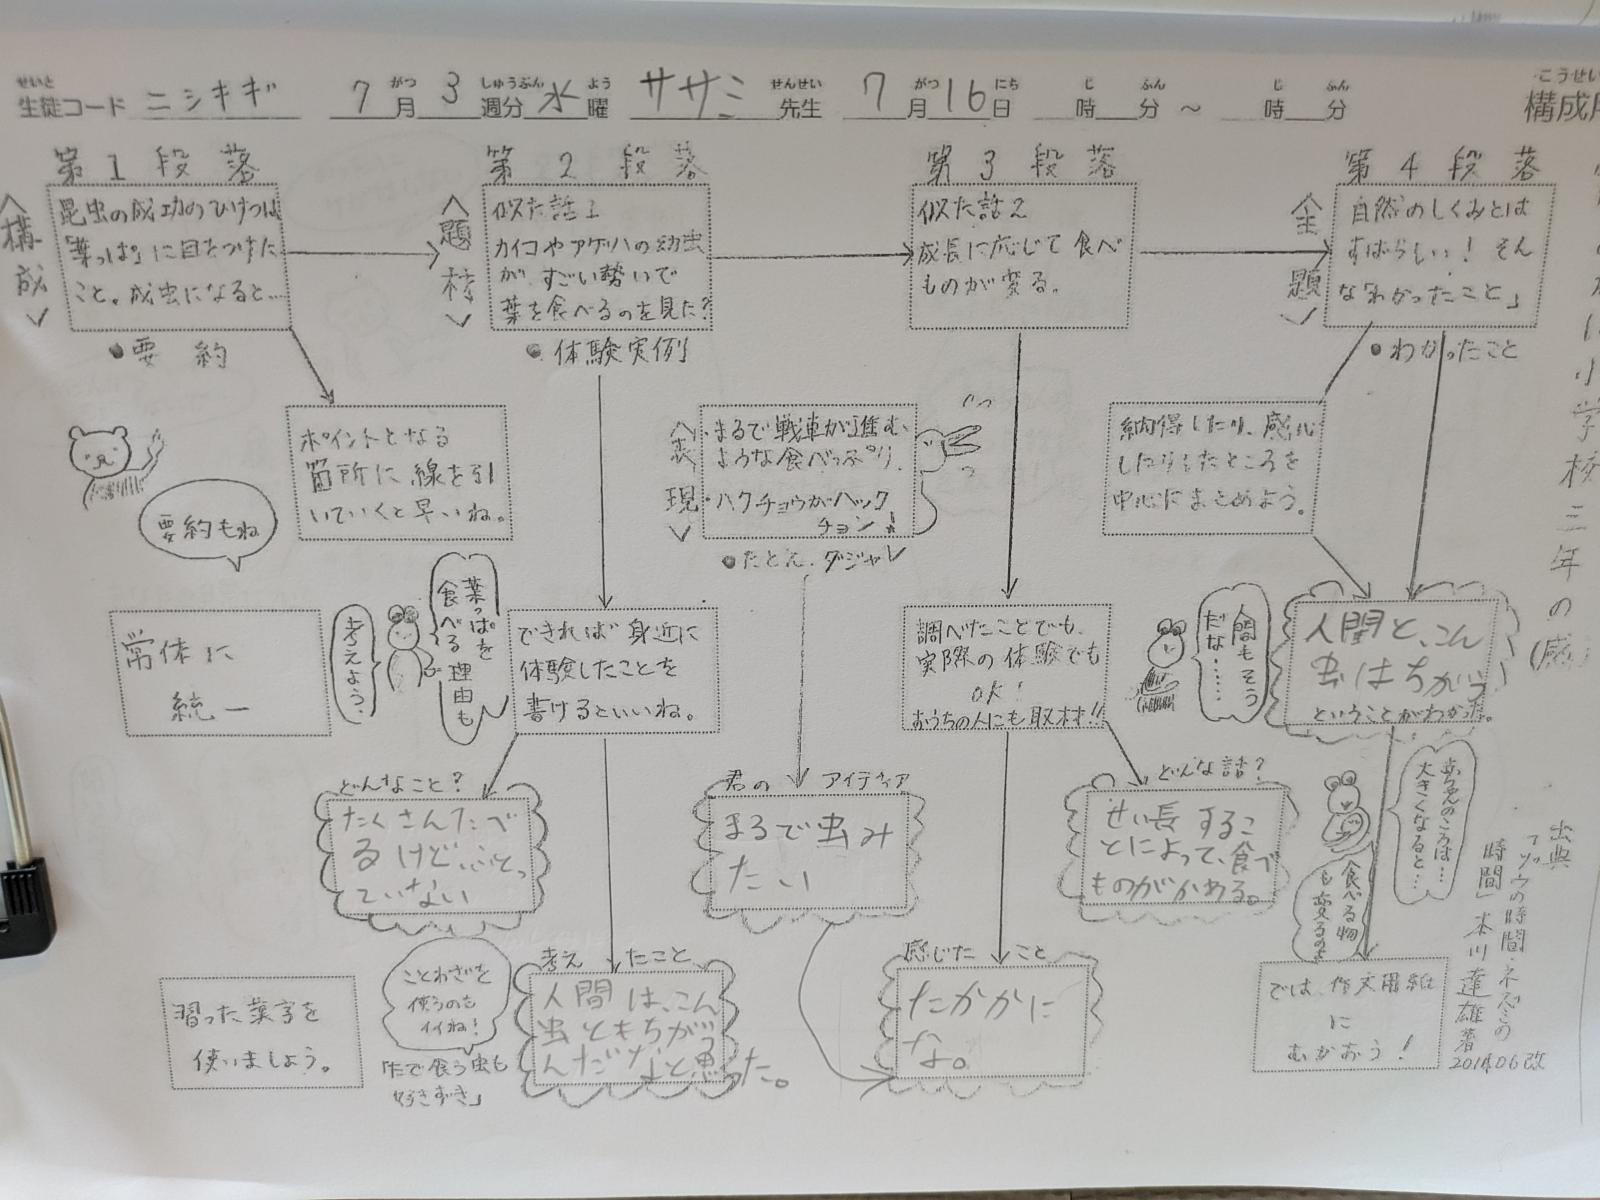 生徒コード ニシキギ 7月 3週分 水曜 ササミ先生 7月16日 時 分 ～ 時 分
せいと がつ しゅうぶん よう せんせい がつ にち じ ふん じ ふん
こうせい
構成
第1段落
第2段落
第3段落
第4段落
＜構成＞
昆虫の成功のひけつは
「葉っぱ」に目をつけた
こと。成虫になると…
●要約
＜題材＞
似た話1
カイコやアゲハの幼虫
が、すごい勢いで
葉を食べるのを見た?
●体験実例
似た話2
成長に応じて食べ
ものが変る。
＜主題＞
自然のしくみとは
すばらしい! そん
な「わかったこと」
●わかったこと
小学校三年の
(感)
要約もね
ポイントとなる
箇所に線を引
いていくと早いね。
＜表現＞
・まるで戦車が進む
ような食べっぷり
・ハクチョウがハック
チョン!
●たとえ、ダジャレ
納得したり、感心
したりしたところを
中心にまとめよう。
常体に
統一
葉っぱを
食べる理由も
考えよう、
できれば身近に
体験したことを
書けるといいね。
調べたことでも、
実際の体験でも
OK!
おうちの人にも取材!!
人間もそう
だな……
人間と、こん
虫はちがう
ということがわかった。
どんなこと?
たくさんたべ
るけど、ふとっ
ていない
君の アイディア
まるで虫み
たい
どんな話?
せい長するこ
とによって、食べ
ものがかわる。
赤ちゃんのころは…
大きくなると…
食べる物
も変るのよ
習った漢字を
使いましょう。
ことわざを
使うのも
イイね!
「たで食う虫も
好きずき」
考えたこと
人間は、こん
虫ともちがう
んだな」と思った。
感じたこと
たかかに
な。
では、作文用紙
に
むかおう!
出典
「ゾウの時間・ネズミの
時間」本川達雄著
201406改